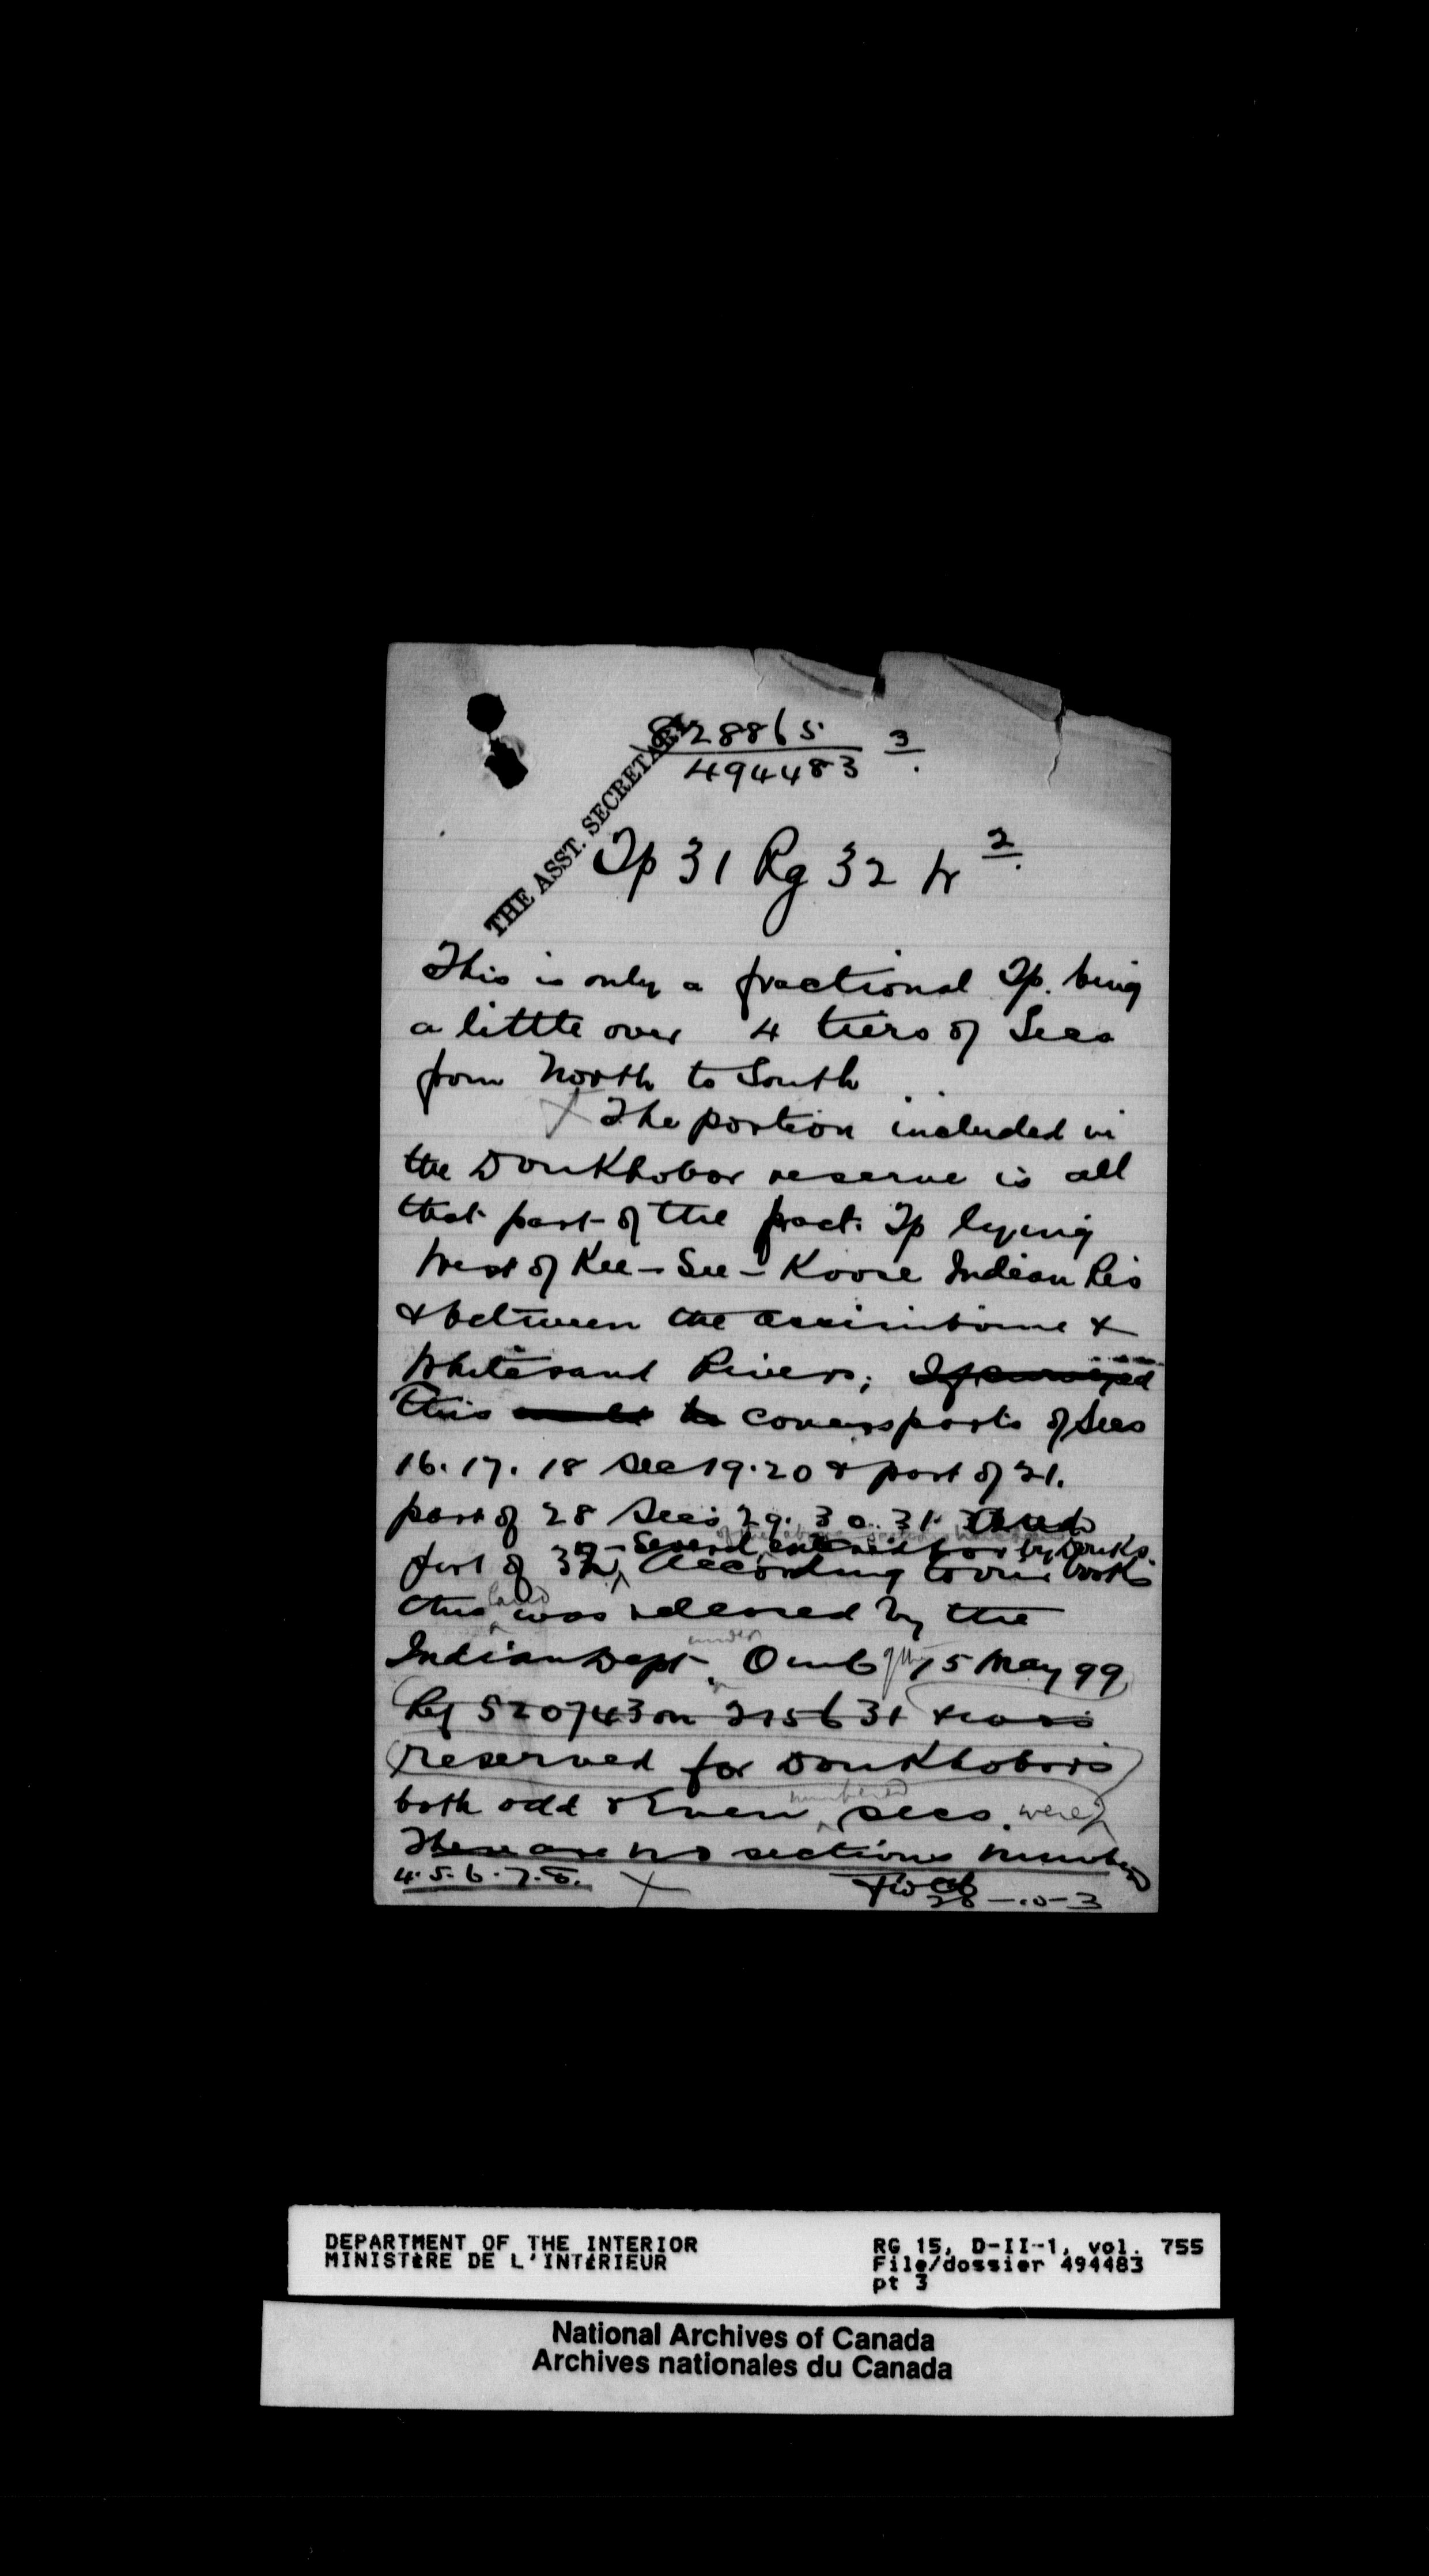 828865 3
494483
THE ASST. SECRETARY
Tp 31 Rg 32 W 2
This is only a fractional Tp. being
a little over 4 tiers of Secs
from North to South
X The portion included in
the Doukhobor reserve is all
that part of the fract. Tp lying
West of Kee-See-Koose Indian Res
& between the Assiniboine &
Whitesand Rivers; If surveyed
This would be covers parts of Secs
16. 17. 18 Sec 19. 20 & part of 21.
part of 28 Secs 29. 30. 31.
of the above sections have been
Several entered for by Douks.
part of 32 According to our books
this land was released by the
Indian Dept. under O in C of the 15 May 99
Ref 520743 on 215631 & was
reserved for Doukhobors
both odd & Even numbered secs. were
There are no sections number
4. 5. 6. 7. 8. X
28-10-3
DEPARTMENT OF THE INTERIOR
MINISTÈRE DE L'INTÉRIEUR
RG 15, D-II-1, vol. 755
File/dossier 494483
pt 3
National Archives of Canada
Archives nationales du Canada